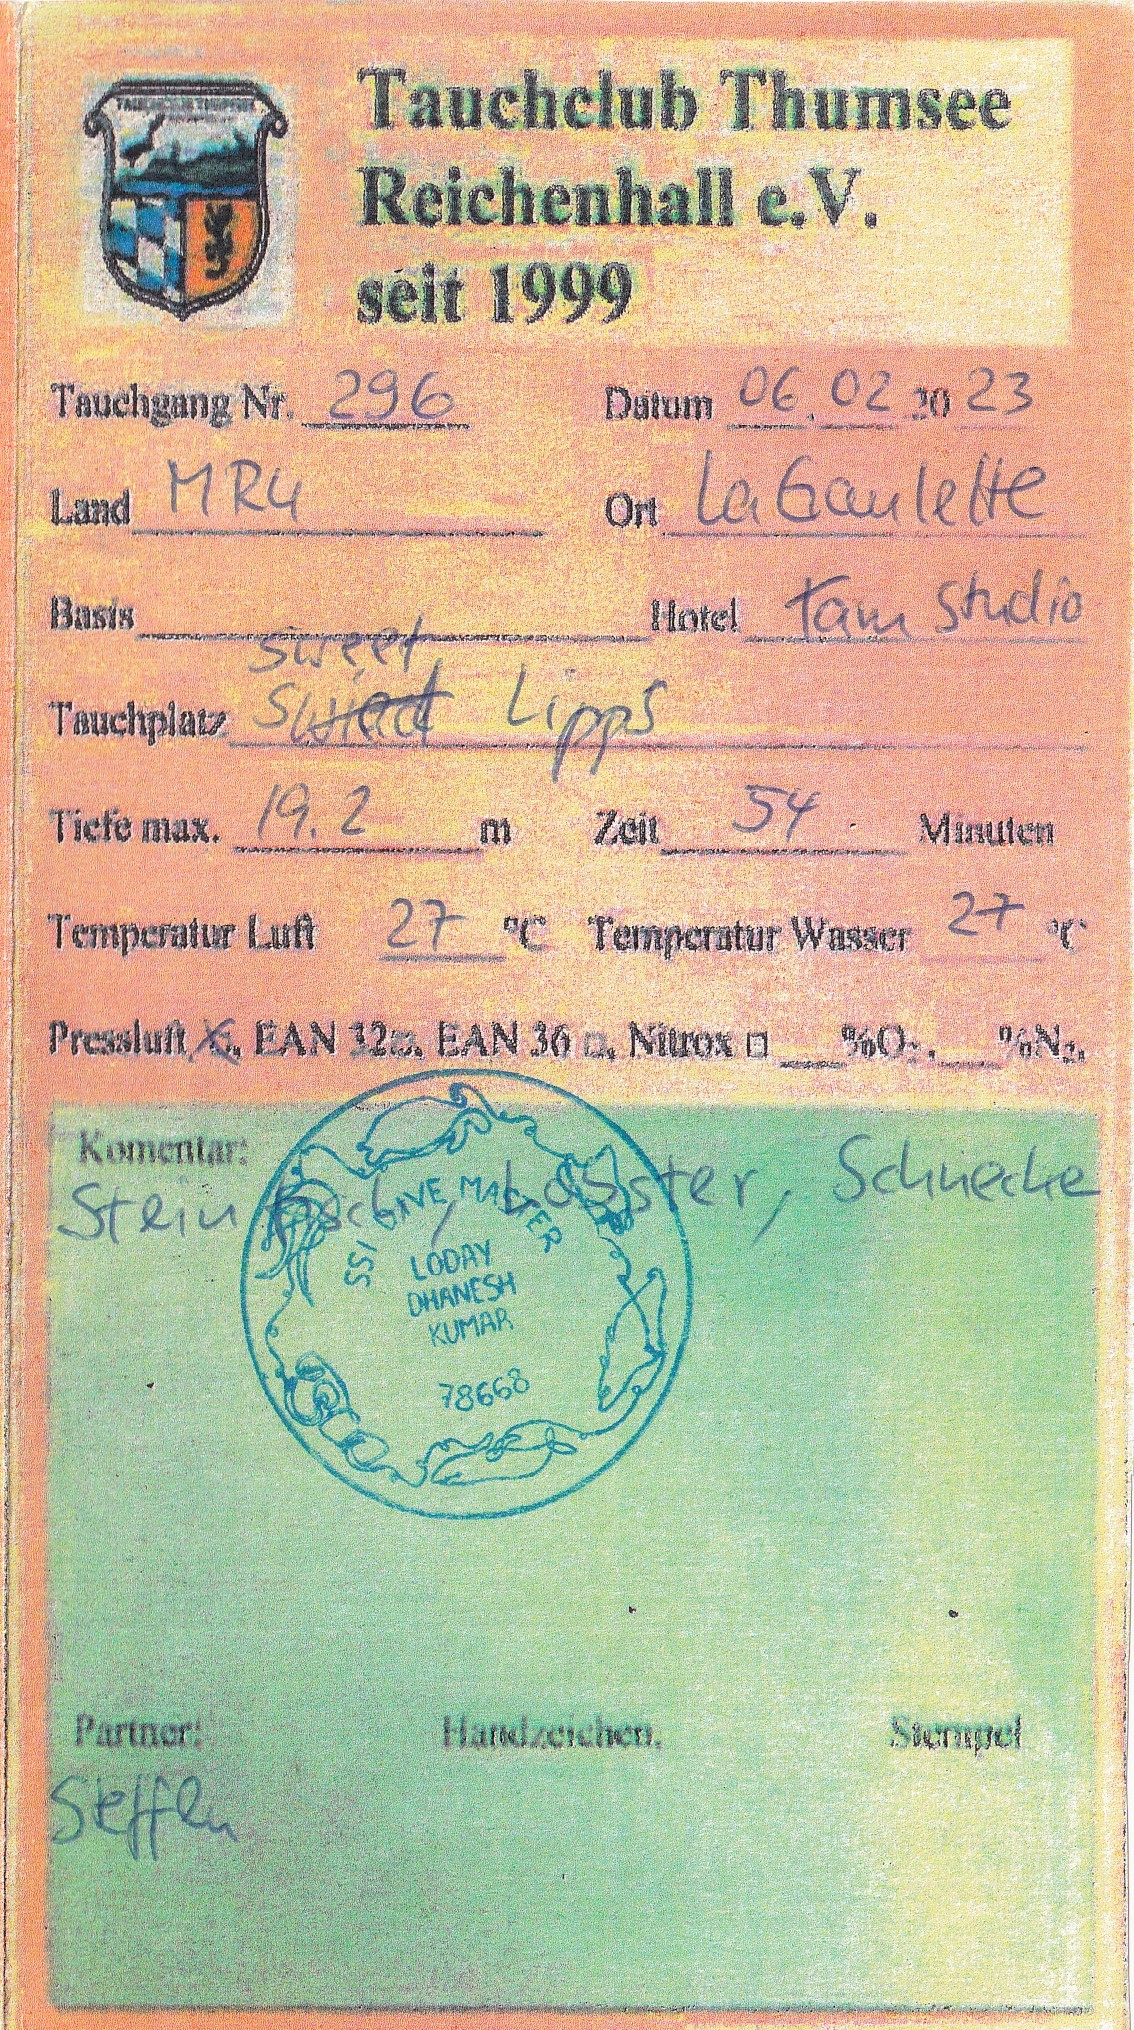 TAUCHCLUB THUMSEE
Tauchclub Thumsee
Reichenhall e.V.
seit 1999
Tauchgang Nr. 296 Datum 06.02 2023
Land MRU Ort La Gaulette
Basis Hotel tam studio
sweet
Tauchplatz Lipps
Tiefe max. 19.2 m Zeit 54 Minuten
Temperatur Luft 27 °C Temperatur Wasser 27 °C
Pressluft X, EAN 32 □, EAN 36 □, Nitrox □ ___%O2, ___%N2,
Komentar:
Steinfisch, Lobster, Schnecke
SSI DIVE MASTER
LODAY
DHANESH
KUMAR
78668
Partner: Handzeichen. Stempel
Steffen